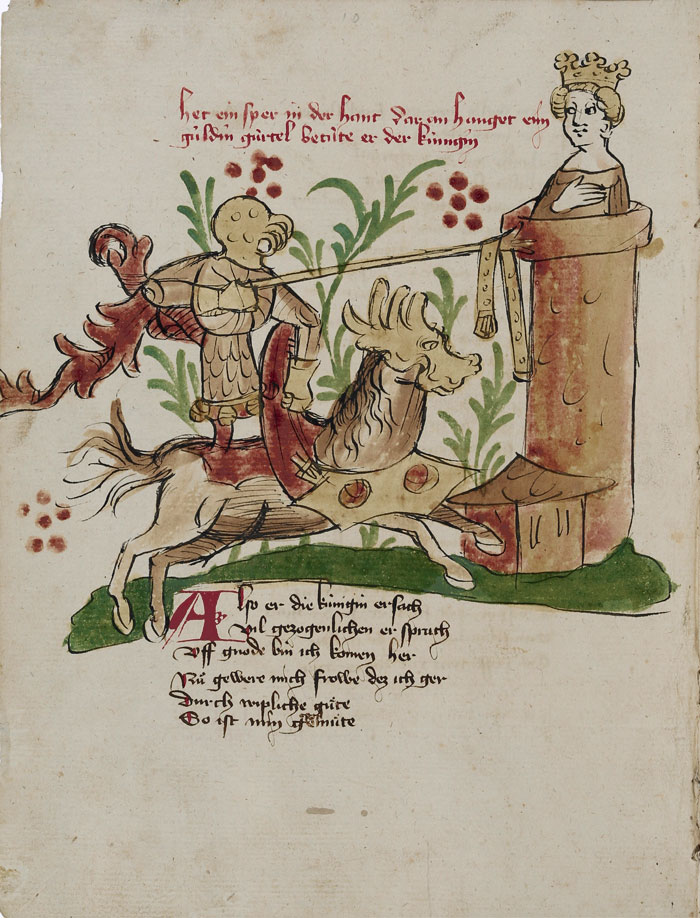 het ein sper in der hant dar an hanget ein
guldin gürtel betüte er der künigin
Also er die künigin ersach
Vil gezogenlichen er sprach
Vff gnode bin ich komen her
Nů gewere mich frowe dez ich ger
Durch wipliche gůte
So ist min gemüte